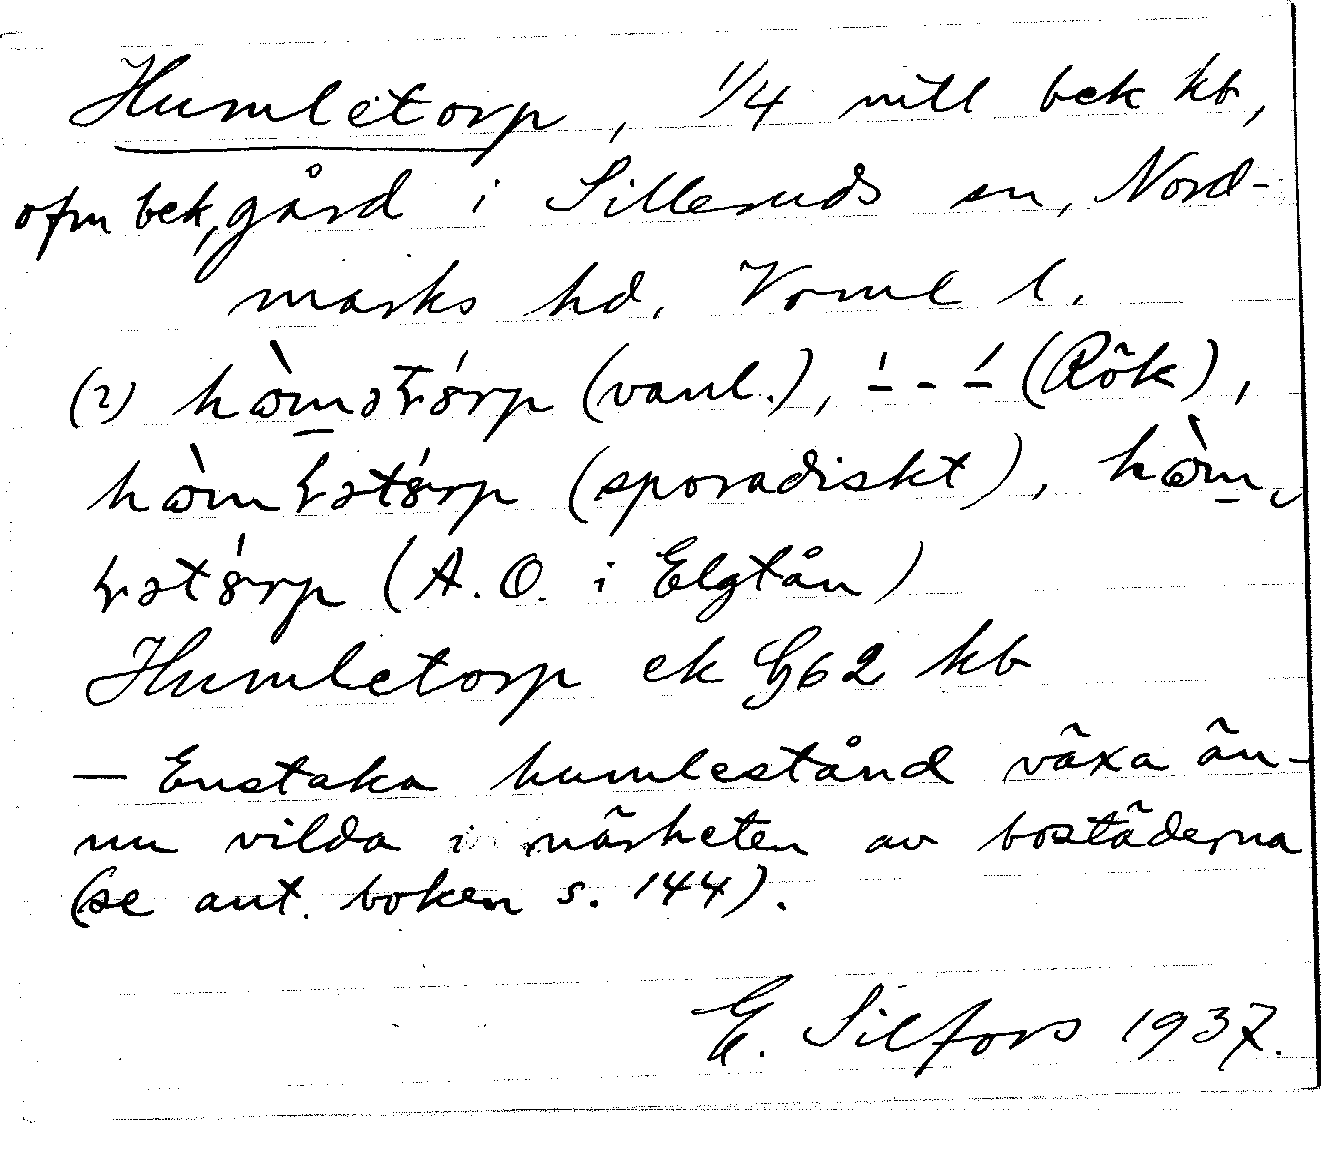 Humletorp, 1/4 mtl bek kb,
ofm bek, gård i Silleruds sn, Nord-
marks hd. Vrml l.
(2) (vanl.), (Rök),
(sporadiskt),
(A. O. i Elgtån)
Humletorp ek G62 kb
— Enstaka humlestånd växa än-
nu vilda i närheten av bostäderna
(se ant. boken s. 144).
E. Silfors 1937.